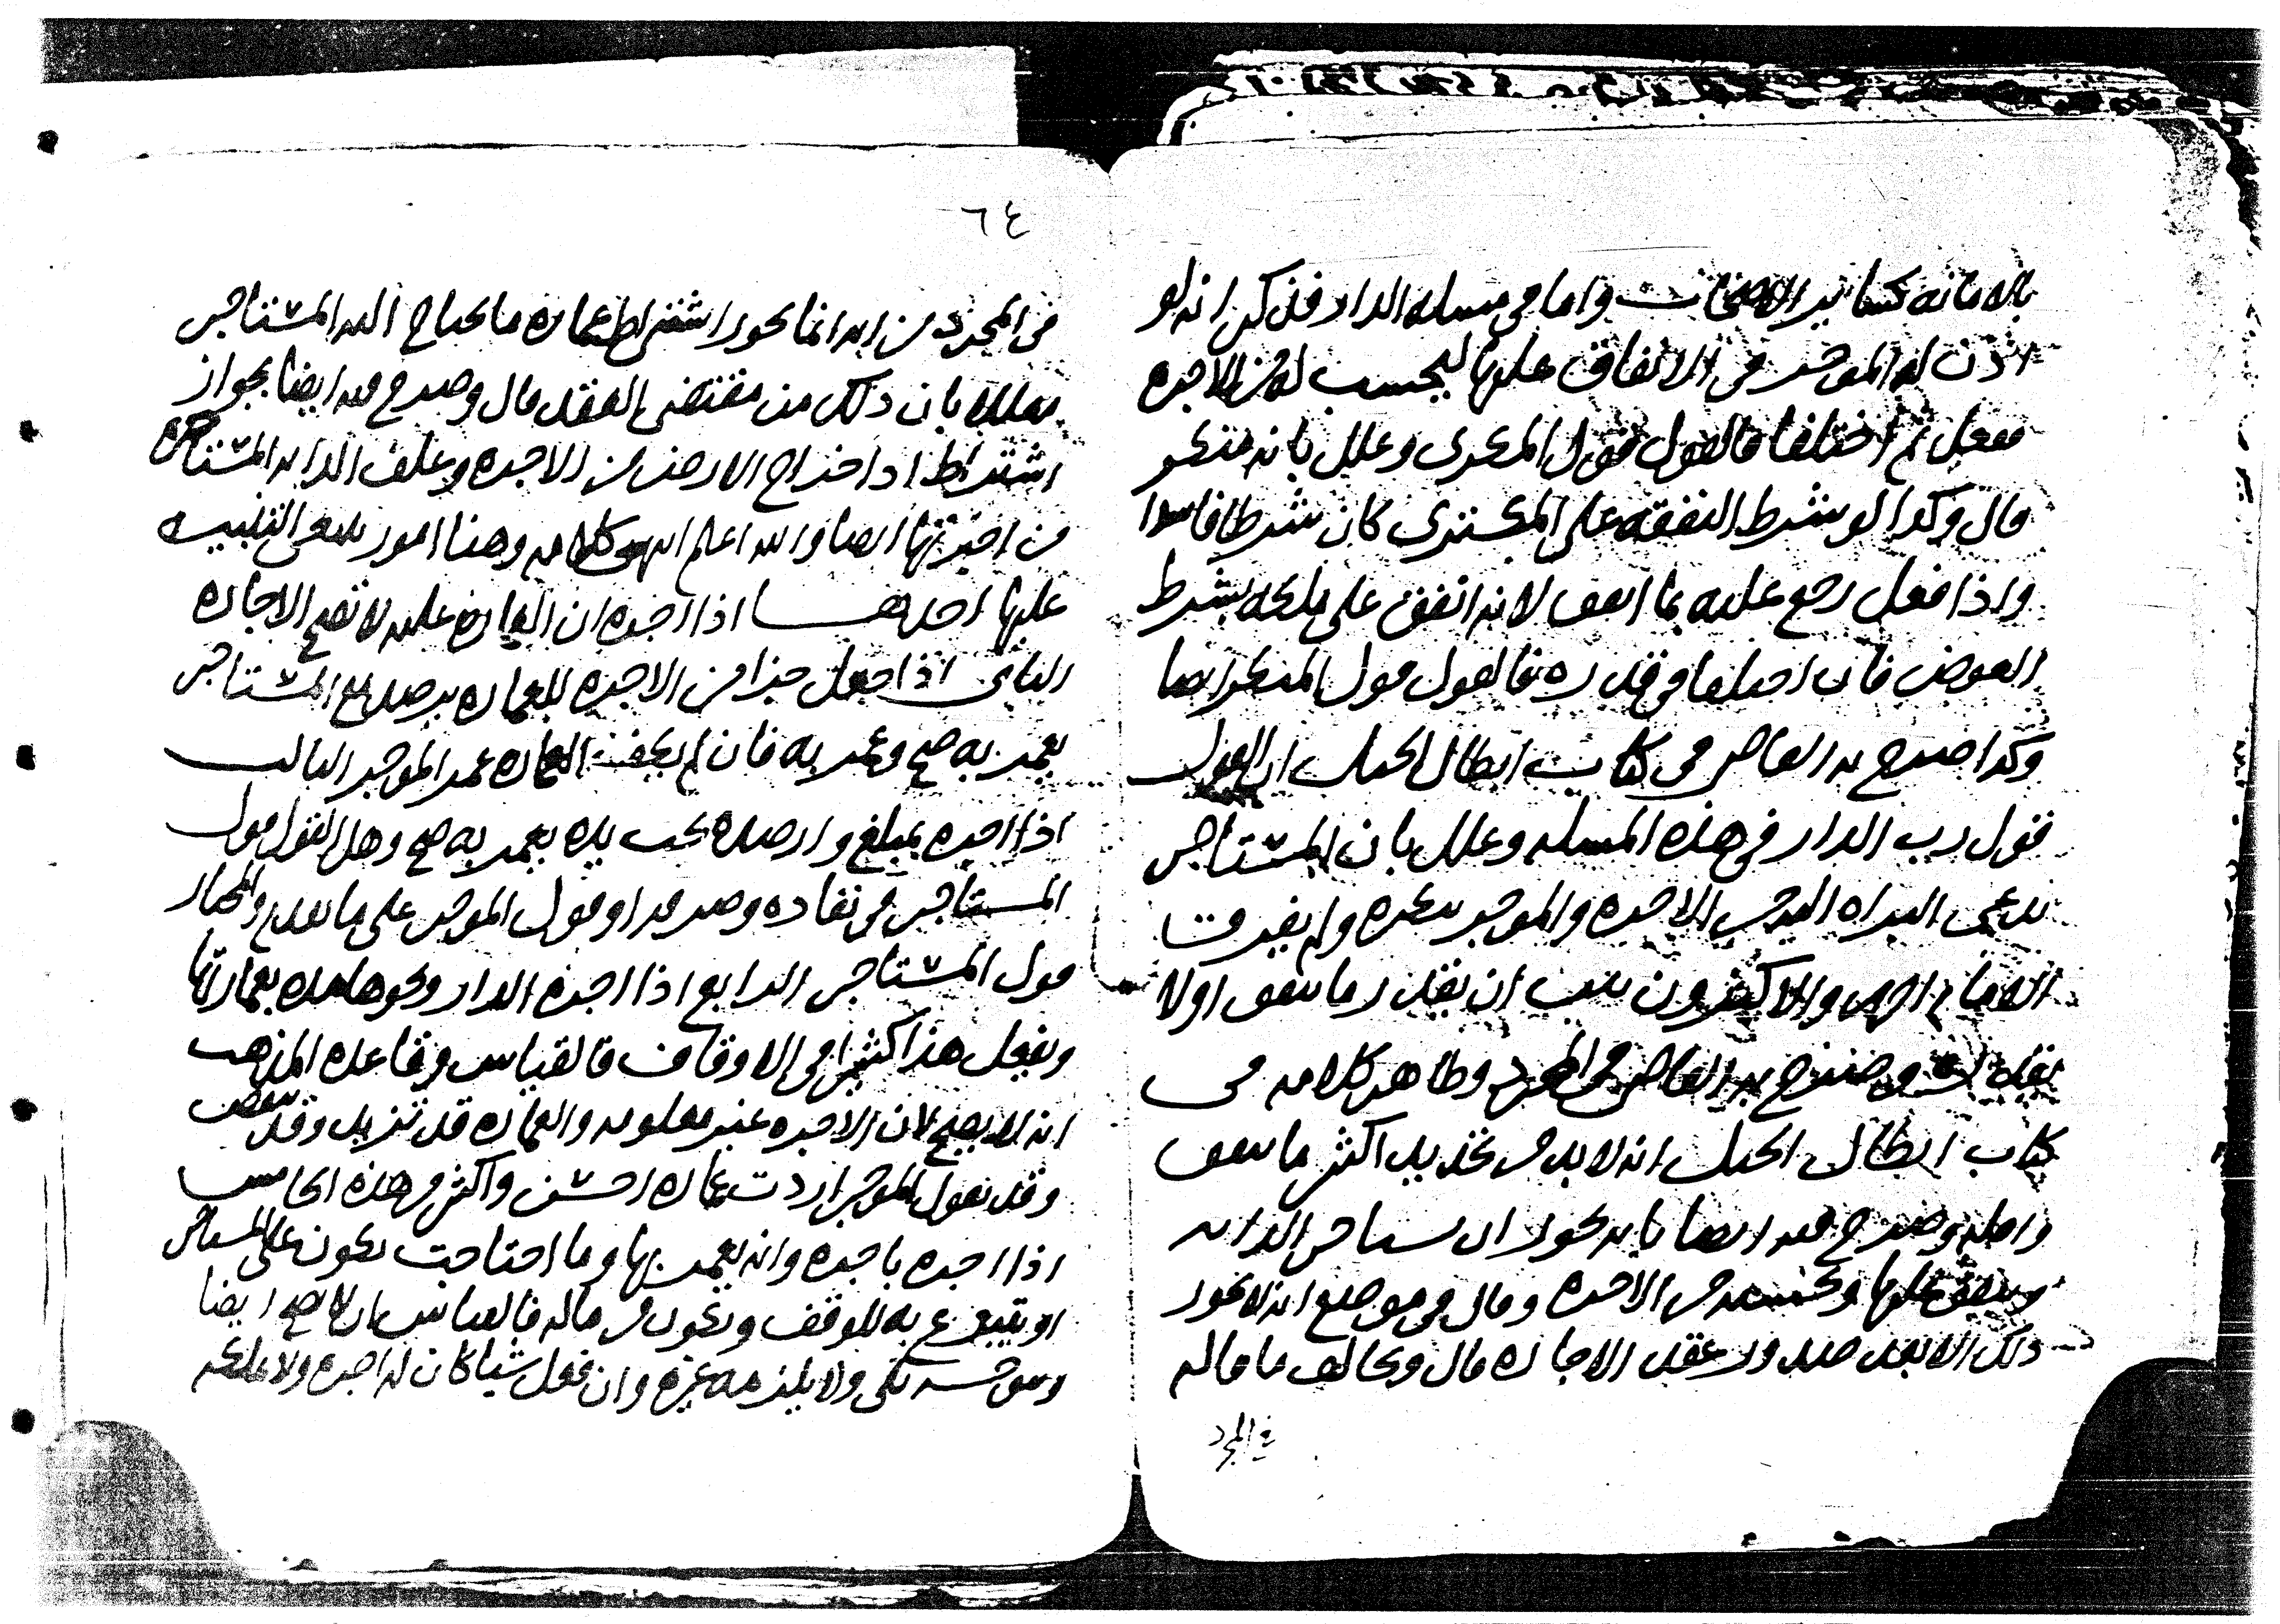 بالامانه كسائر الامانات واما في مسله الدار فذكر انه لو
اذن له الموجر في الانفاق عليها ليحسب له من الاجره
ففعل ثم اختلفا فالقول قول المكرى وعلل بانه منكر
قال وكذا لو شرط النفقه على المكتري كان شرطا فاسدا
واذا فعل رجع عليه بما انفق لانه انفق على ملكه بشرط
العوض فان اختلفا في قدره فالقول قول المنكر ايضا
وكذا صرح به القاضي في كتاب ابطال الحيل ان القول
قول رب الدار في هذه المسله وعلل بان المستاجر
يدعي البراه اليه من الاجره والموجر ينكره ولم يفرق
الامام احمد والاكثرون بين ان يقدر ما ينفق اولا
يقدره وصرح به القاضي في المجرد وظاهر كلامه في
كتاب ابطال الحيل انه لا بد من تحديد اكثر ما ينفق
واطلق وصرح فيه ايضا بانه يجوز ان يستاجر الدابه
وينفق عليها ويحتسبه من الاجره وقال في موضع انه لا يجوز
ذلك الا بعد صدور عقد الاجاره قال ويخالف ما قاله
في المجرد
٦٤
في المجرد من انه انما يجوز اشتراط عماره ما يحتاج اليه المستاجر
معللا بان ذلك من مقتضى العقد قال وصرح فيه ايضا بجواز
اشتراط اداخراج الارض من الاجره وعلف الدابه المستاجره
من اجرتها ايضا والله اعلم انتهى كلامه وهنا امور ينبغي التنبيه
عليها احدها اذا اجره ان العماره عليه لا تصح الاجاره
الثاني اذا جعل جزا من الاجره للعماره يرصد مع المستاجر
يعمر به صح وعمر به فان لم يكف العماره عمر الموجر الثالث
اذا اجره بمبلغ وارصده تحت يده يعمر به صح وهل القول قول
المستاجر في نفاده وصرفه او قول الموجر على ما تقدم والمختار
قول المستاجر الرابع اذا اجره الدار ونحوها مده بعمارتها
ويفعل هذا كثيرا في الاوقاف فالقياس وقاعده المذهب
انه لا يصح لان الاجره غير معلومه والعماره قد تزيد وقد تنقص
وقد يقول الموجر اردت عماره احسن واكثر من هذه الخامس
اذا اجره باجره وانه يعمر بها وما احتاجت يكون على المستاجر
او يتبرع به للوقف ويكون من ماله فالقياس ان لا يصح ايضا
ومن حسه تكفي ولا يلزمه غيره وان فعل شيا كان له اجره ولا يملكه